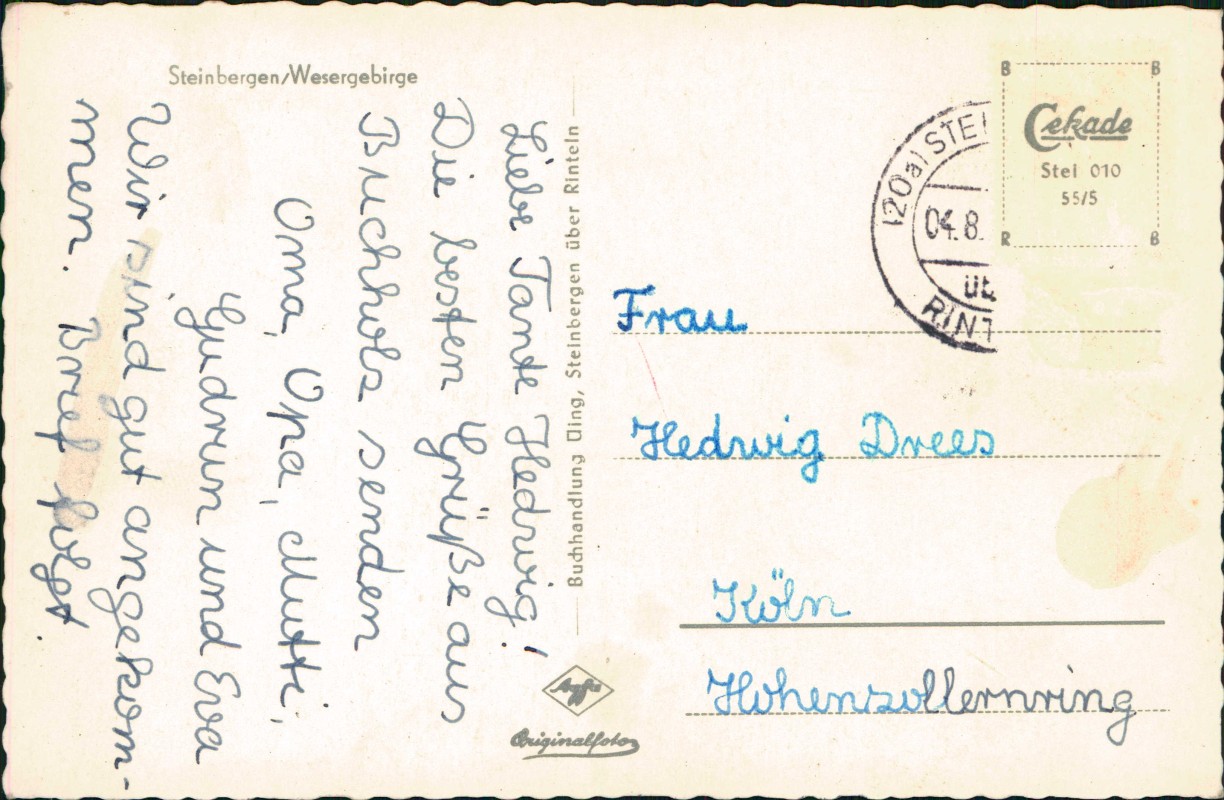 Steinbergen/Wesergebirge
Liebe Tante Hedwig!
Die besten Grüße aus
Buchholz senden
Oma, Opa, Mutti,
Gudrun und Eva
Wir sind gut angekom-
men. Brief folgt.
Buchhandlung Ding, Steinbergen über Rinteln
Agfa
Originalfoto
(20a) STEI
04.8.
üb
RINT
B B
Cekade
Stei 010
55/5
R B
Frau
Hedwig Drees
Köln
Hohenzollernring